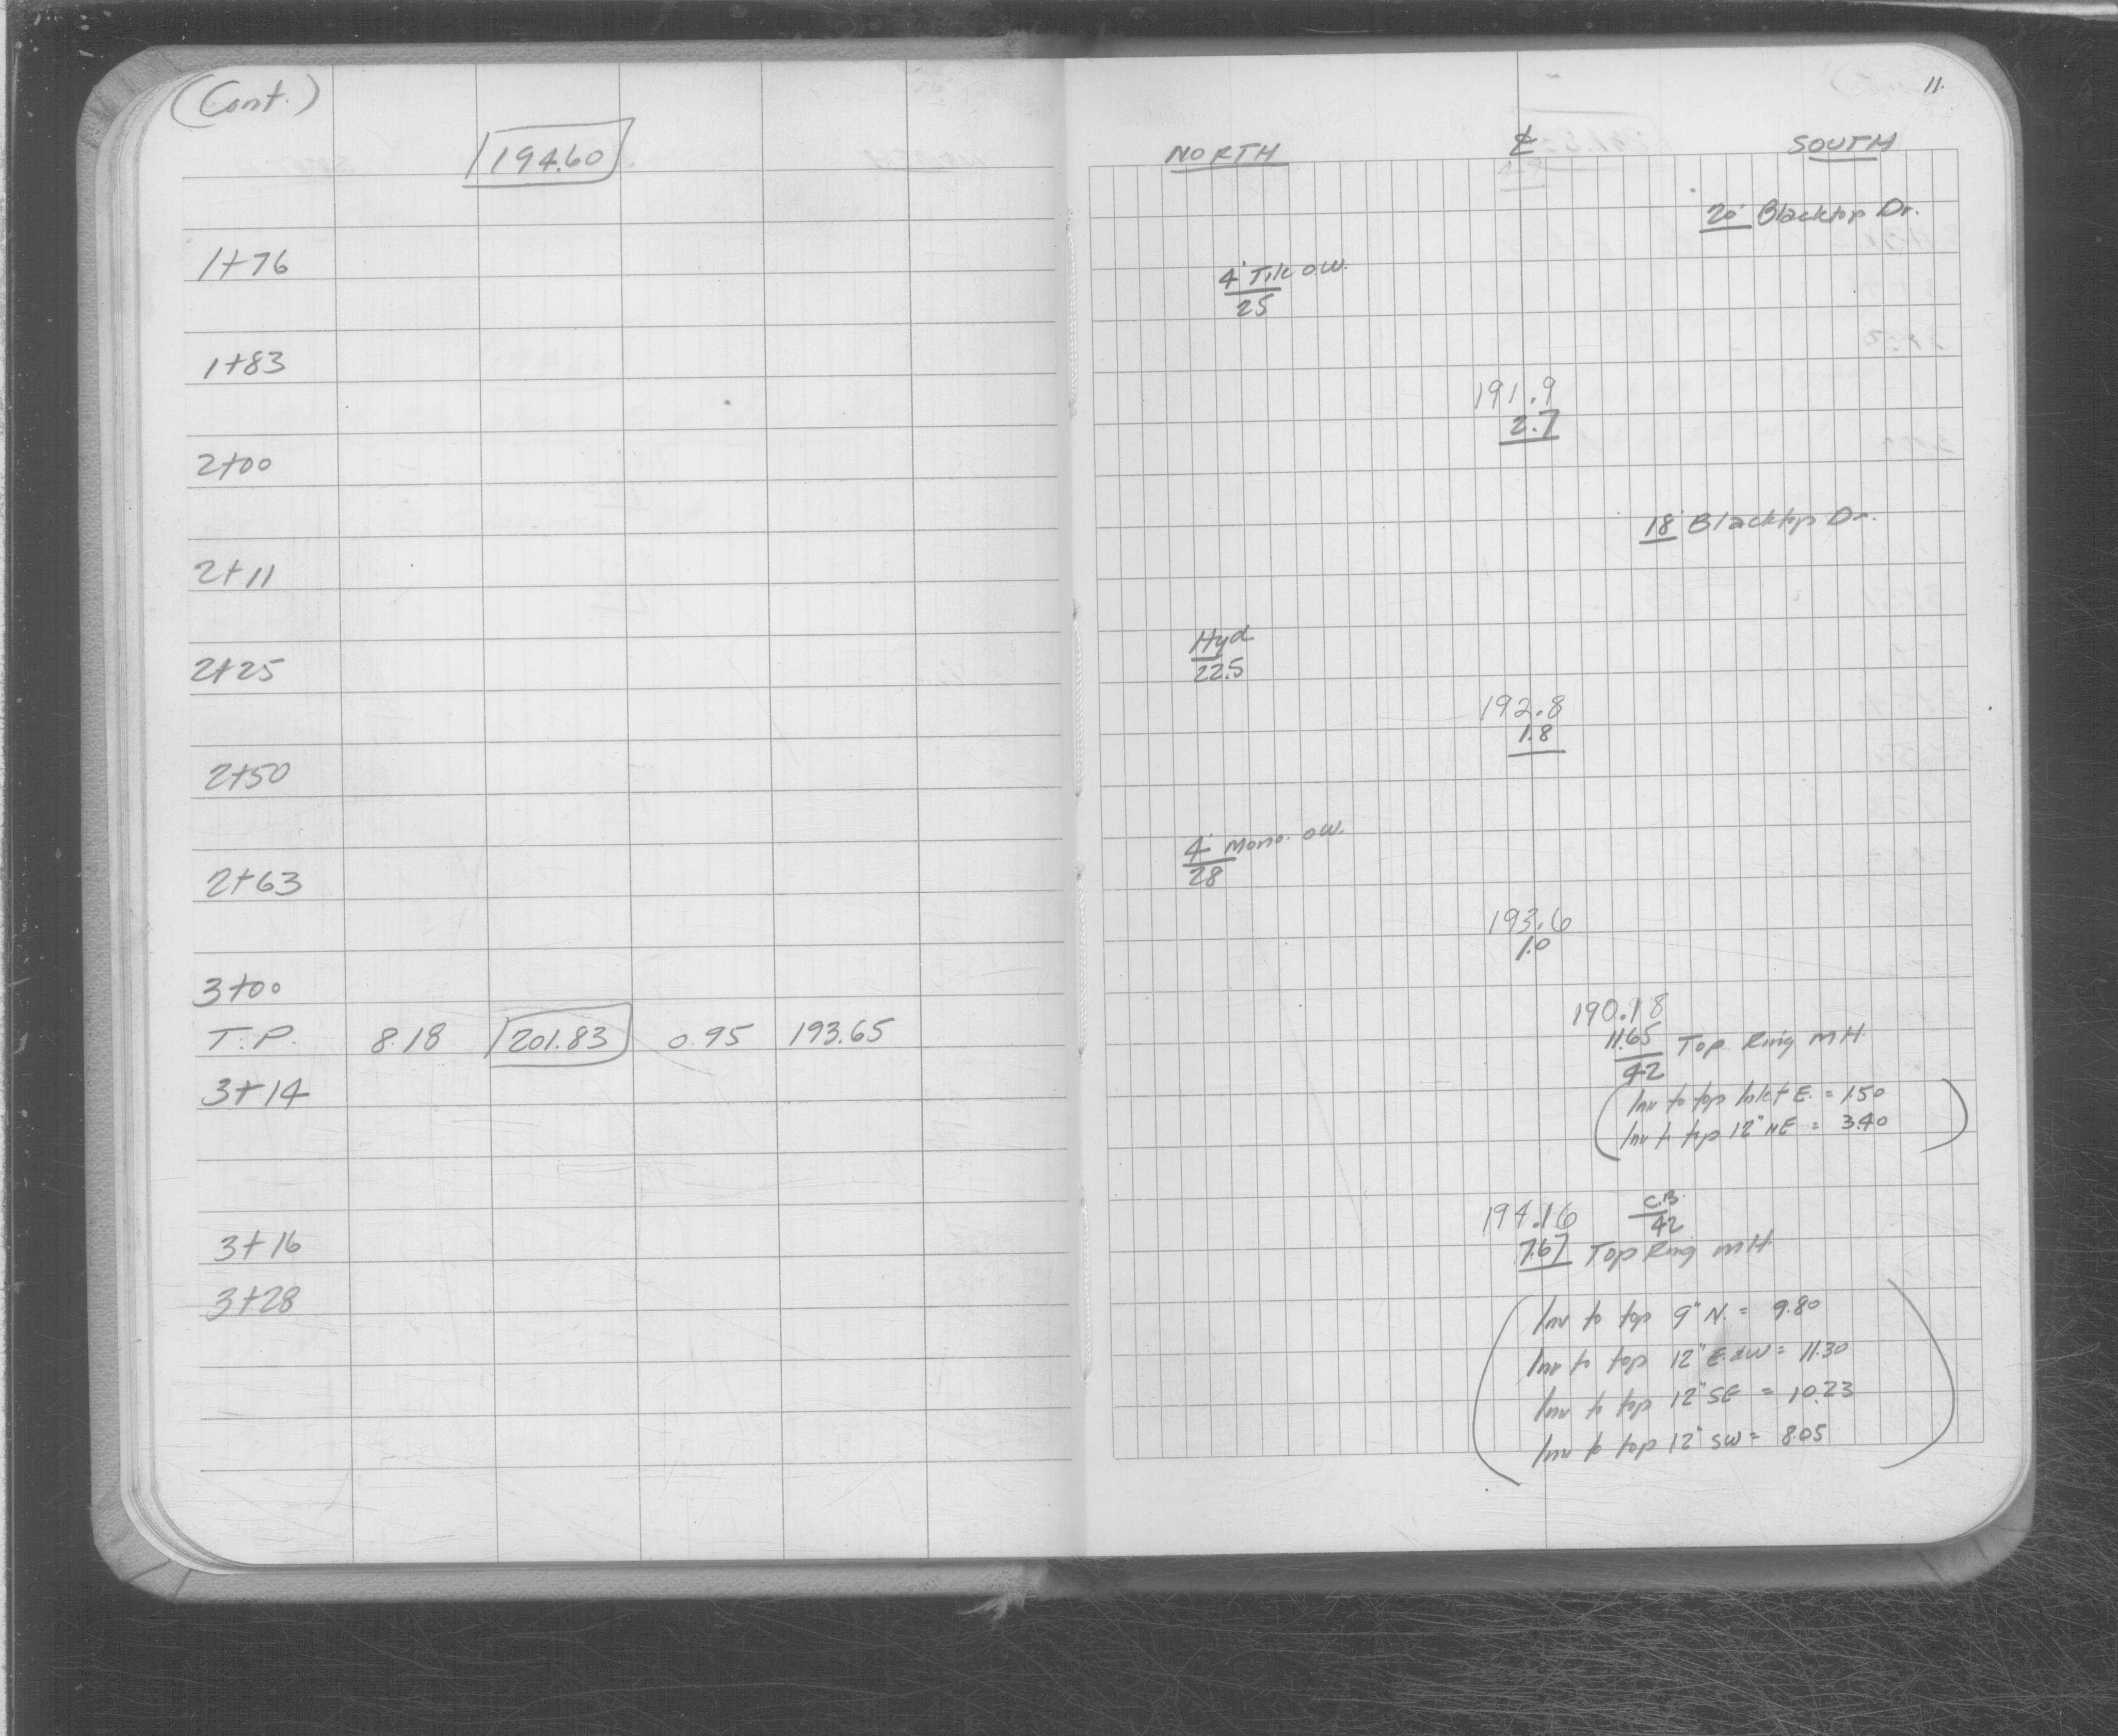 (Cont.)
194.60
1+76
1+83
2+00
2+11
2+25
2+50
2+63
3+00
T.P. 8.18 201.83 0.95 193.65
3+14
3+16
3+28
11.
NORTH ℄ SOUTH
20' Blacktop Dr.
4' Tile O.W.
25
191.9
2.7
18' Blacktop Dr.
Hyd
22.5
192.8
1.8
4' Mono. O.W.
28
193.6
1.0
190.18
11.65 Top Ring MH
42
Inv to top Inlet E. = 1.50
Inv to top 12" NE = 3.40
194.16 C.B.
42
7.67 Top Ring MH
Inv to top 9" N. = 9.80
Inv to top 12" E.&W = 11.30
Inv to top 12" SE = 10.23
Inv to top 12" SW = 8.05